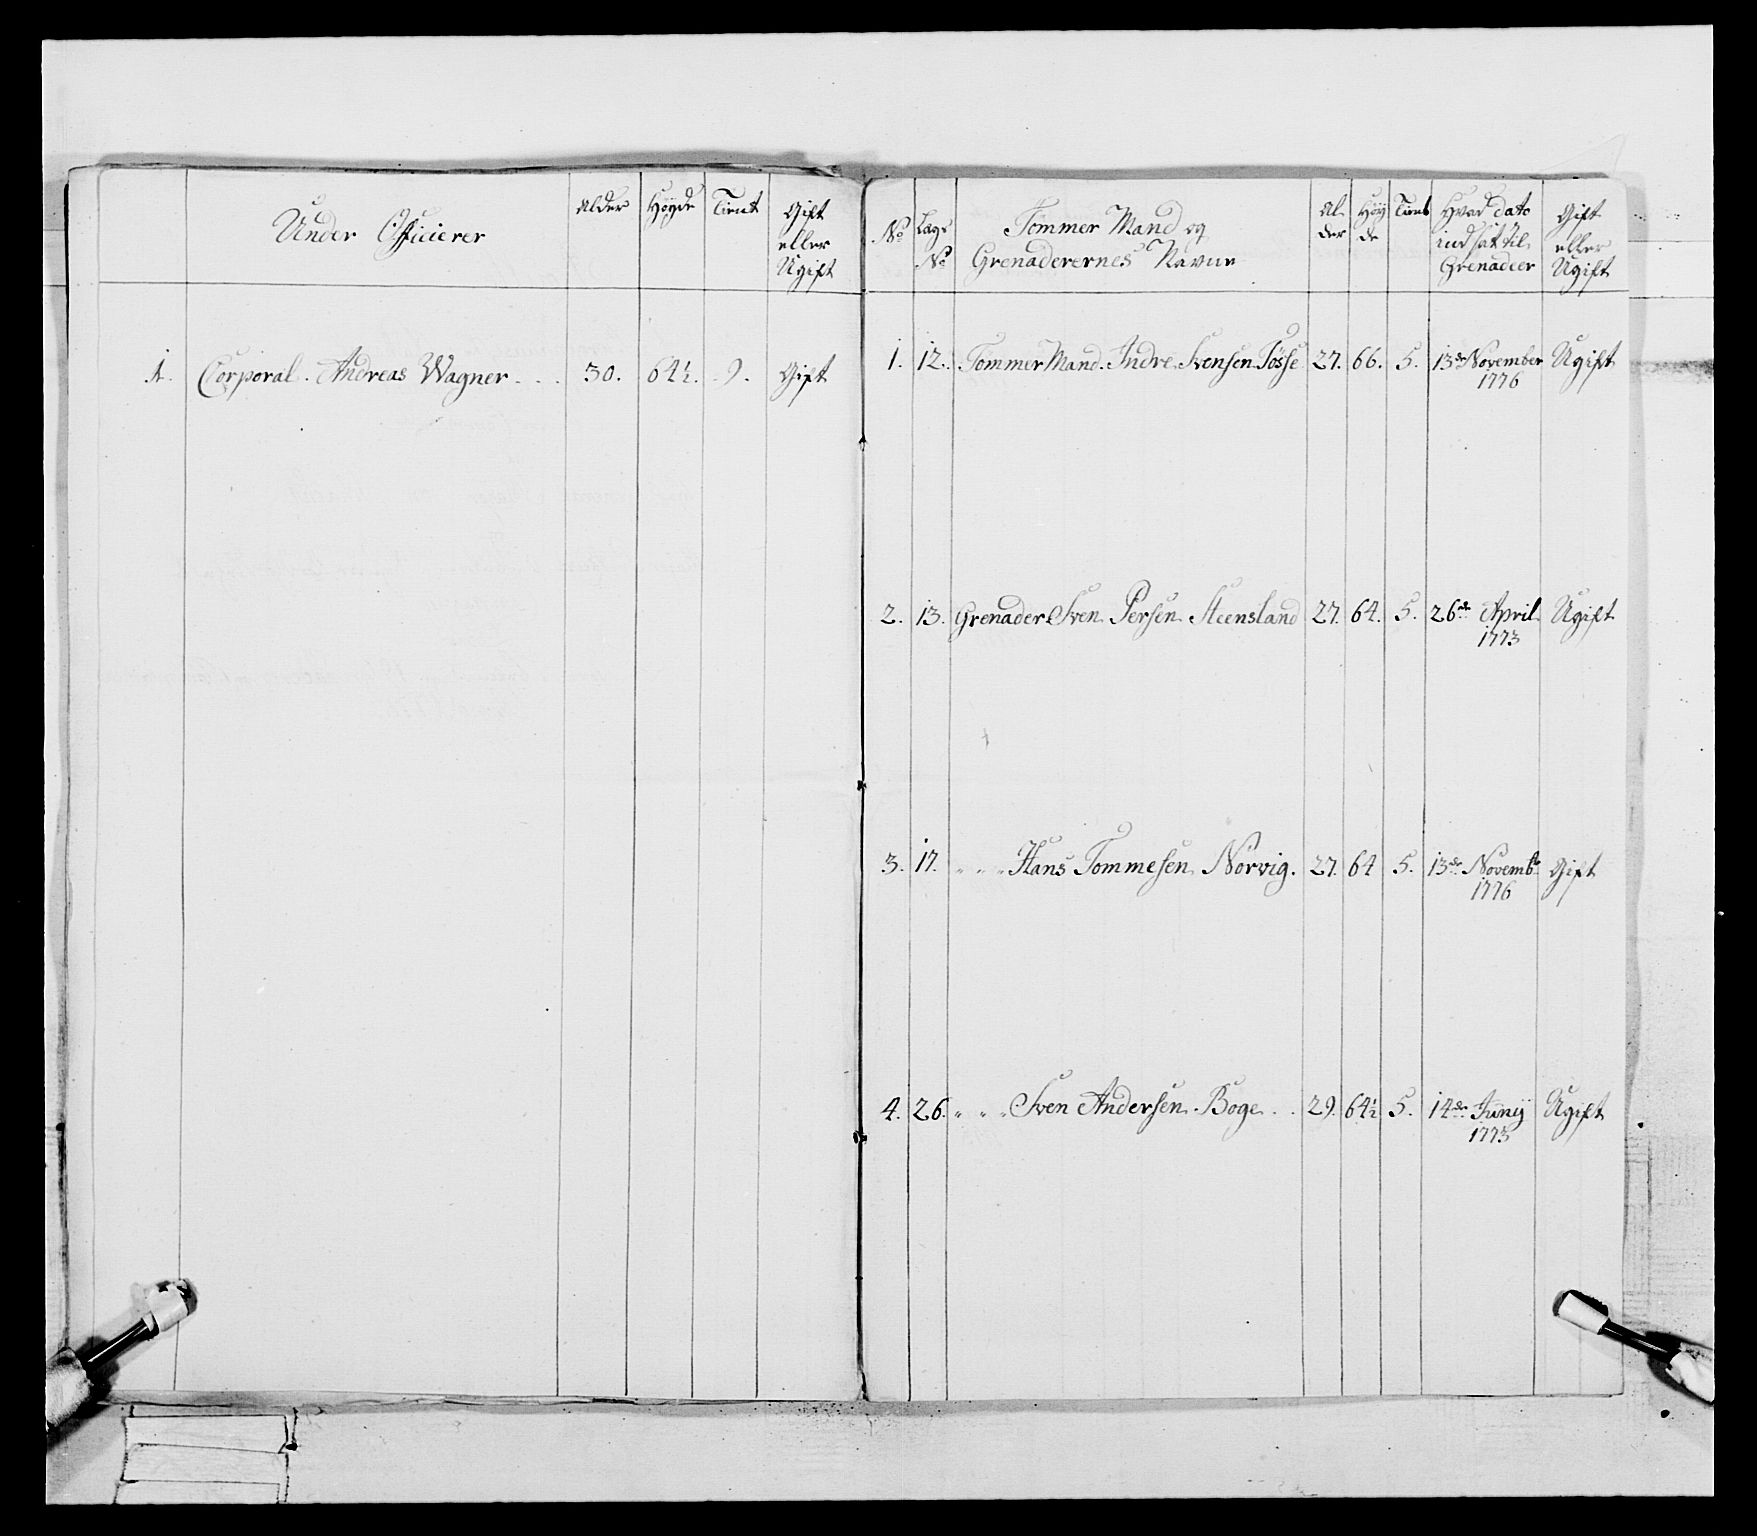 Under Officierer
Alder
Høyde
Tient
Gift
eller
Ugift
1. Corporal. Andreas Wagner . . . 30. 64½. 9. Gift
No
Lægs
No
Tømmer Mand og
Grenaderernes Navne
Al
der
Høy
de
Tient
Hvad dato
indsat til
Grenadeer
Gift
eller
Ugift
1. 12. Tømmer Mand. Andre Svensen Tøsse 27. 66. 5. 13de November Ugift
1776
2. 13. Grenader Sven Persen Steensland 27. 64. 5. 26de April Ugift
1773
3. 17. " " " Hans Tommesen Nörvig. 27. 64 5. 13de Novembr Gift
1776
4. 26. " " " Sven Andersen Boge . . 29. 64½ 5. 14de Junÿ Ugift
1773